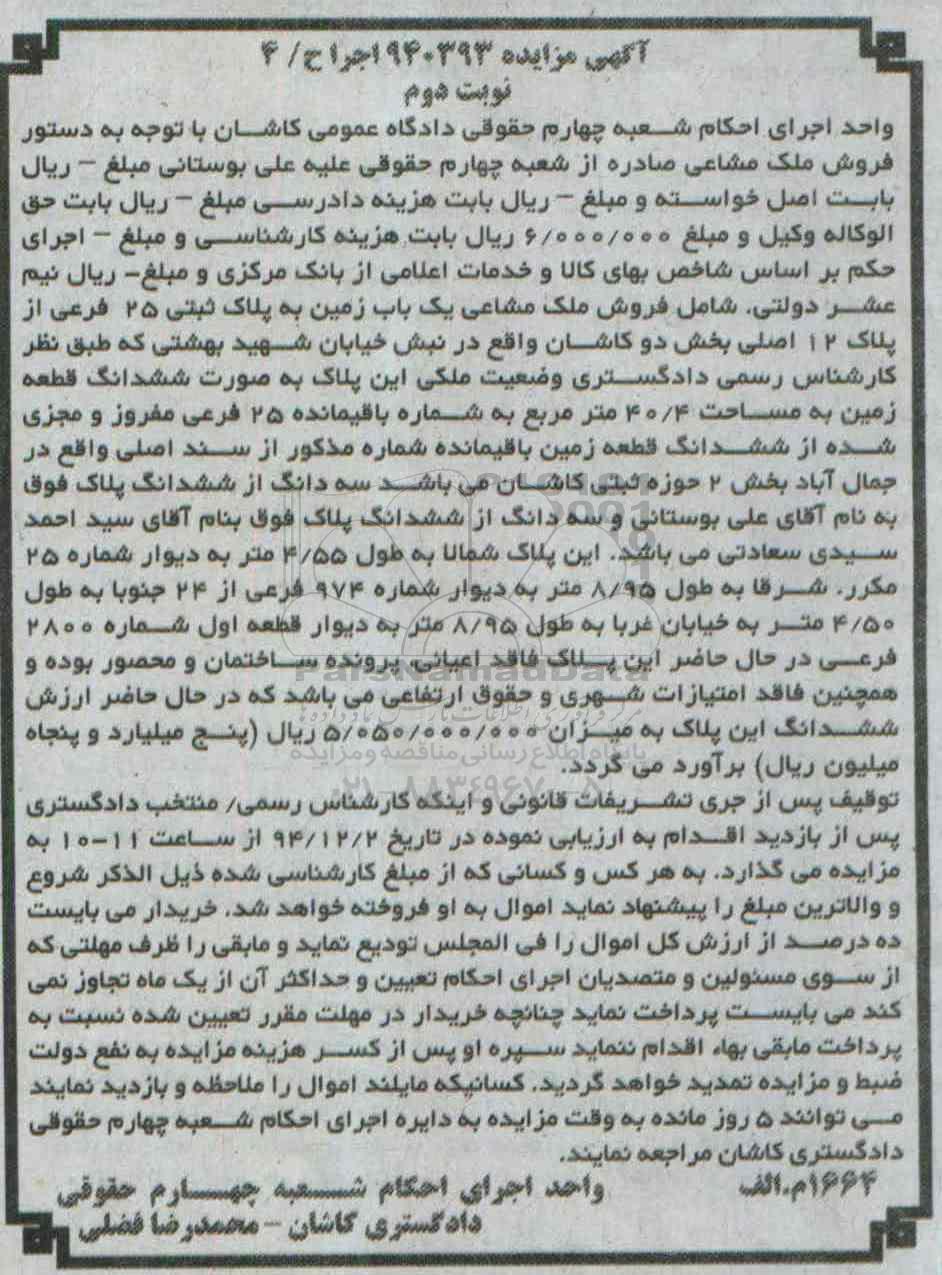 آگهی مزایده ۹۴۰۳۹۳ اجرا ح/ ۴
نوبت دوم
واحد اجرای احکام شعبه چهارم حقوقی دادگاه عمومی کاشان با توجه به دستور
فروش ملک مشاعی صادره از شعبه چهارم حقوقی علیه علی بوستانی مبلغ – ریال
بابت اصل خواسته و مبلغ – ریال بابت هزینه دادرسی مبلغ – ریال بابت حق
الوکاله وکیل و مبلغ ۶/۰۰۰/۰۰۰ ریال بابت هزینه کارشناسی و مبلغ – اجرای
حکم بر اساس شاخص بهای کالا و خدمات اعلامی از بانک مرکزی و مبلغ– ریال نیم
عشر دولتی. شامل فروش ملک مشاعی یک باب زمین به پلاک ثبتی ۲۵ فرعی از
پلاک ۱۲ اصلی بخش دو کاشان واقع در نبش خیابان شهید بهشتی که طبق نظر
کارشناس رسمی دادگستری وضعیت ملکی این پلاک به صورت ششدانگ قطعه
زمین به مساحت ۴۰/۴ متر مربع به شماره باقیمانده ۲۵ فرعی مفروز و مجزی
شده از ششدانگ قطعه زمین باقیمانده شماره مذکور از سند اصلی واقع در
جمال آباد بخش ۲ حوزه ثبتی کاشان می باشد سه دانگ از ششدانگ پلاک فوق
به نام آقای علی بوستانی و سه دانگ از ششدانگ پلاک فوق بنام آقای سید احمد
سیدی سعادتی می باشد. این پلاک شمالا به طول ۴/۵۵ متر به دیوار شماره ۲۵
مکرر. شرقا به طول ۸/۹۵ متر به دیوار شماره ۹۷۴ فرعی از ۲۴ جنوبا به طول
۴/۵۰ متر به خیابان غربا به طول ۸/۹۵ متر به دیوار قطعه اول شماره ۲۸۰۰
فرعی در حال حاضر این پلاک فاقد اعیانی، پرونده ساختمان و محصور بوده و
همچنین فاقد امتیازات شهری و حقوق ارتفاعی می باشد که در حال حاضر ارزش
ششدانگ این پلاک به میزان ۵/۰۵۰/۰۰۰/۰۰۰ ریال (پنج میلیارد و پنجاه
میلیون ریال) برآورد می گردد.
توقیف پس از جری تشریفات قانونی و اینکه کارشناس رسمی/ منتخب دادگستری
پس از بازدید اقدام به ارزیابی نموده در تاریخ ۹۴/۱۲/۲ از ساعت ۱۱-۱۰ به
مزایده می گذارد. به هر کس و کسانی که از مبلغ کارشناسی شده ذیل الذکر شروع
و والاترین مبلغ را پیشنهاد نماید اموال به او فروخته خواهد شد. خریدار می بایست
ده درصد از ارزش کل اموال را فی المجلس تودیع نماید و مابقی را ظرف مهلتی که
از سوی مسئولین و متصدیان اجرای احکام تعیین و حداکثر آن از یک ماه تجاوز نمی
کند می بایست پرداخت نماید چنانچه خریدار در مهلت مقرر تعیین شده نسبت به
پرداخت مابقی بهاء اقدام ننماید سپره او پس از کسر هزینه مزایده به نفع دولت
ضبط و مزایده تمدید خواهد گردید. کسانیکه مایلند اموال را ملاحظه و بازدید نمایند
می توانند ۵ روز مانده به وقت مزایده به دایره اجرای احکام شعبه چهارم حقوقی
دادگستری کاشان مراجعه نمایند.
۱۶۶۴/م.الف واحد اجرای احکام شعبه چهارم حقوقی
دادگستری کاشان – محمدرضا فضلی
ParsNamadData
پایگاه اطلاع رسانی مناقصه و مزایده